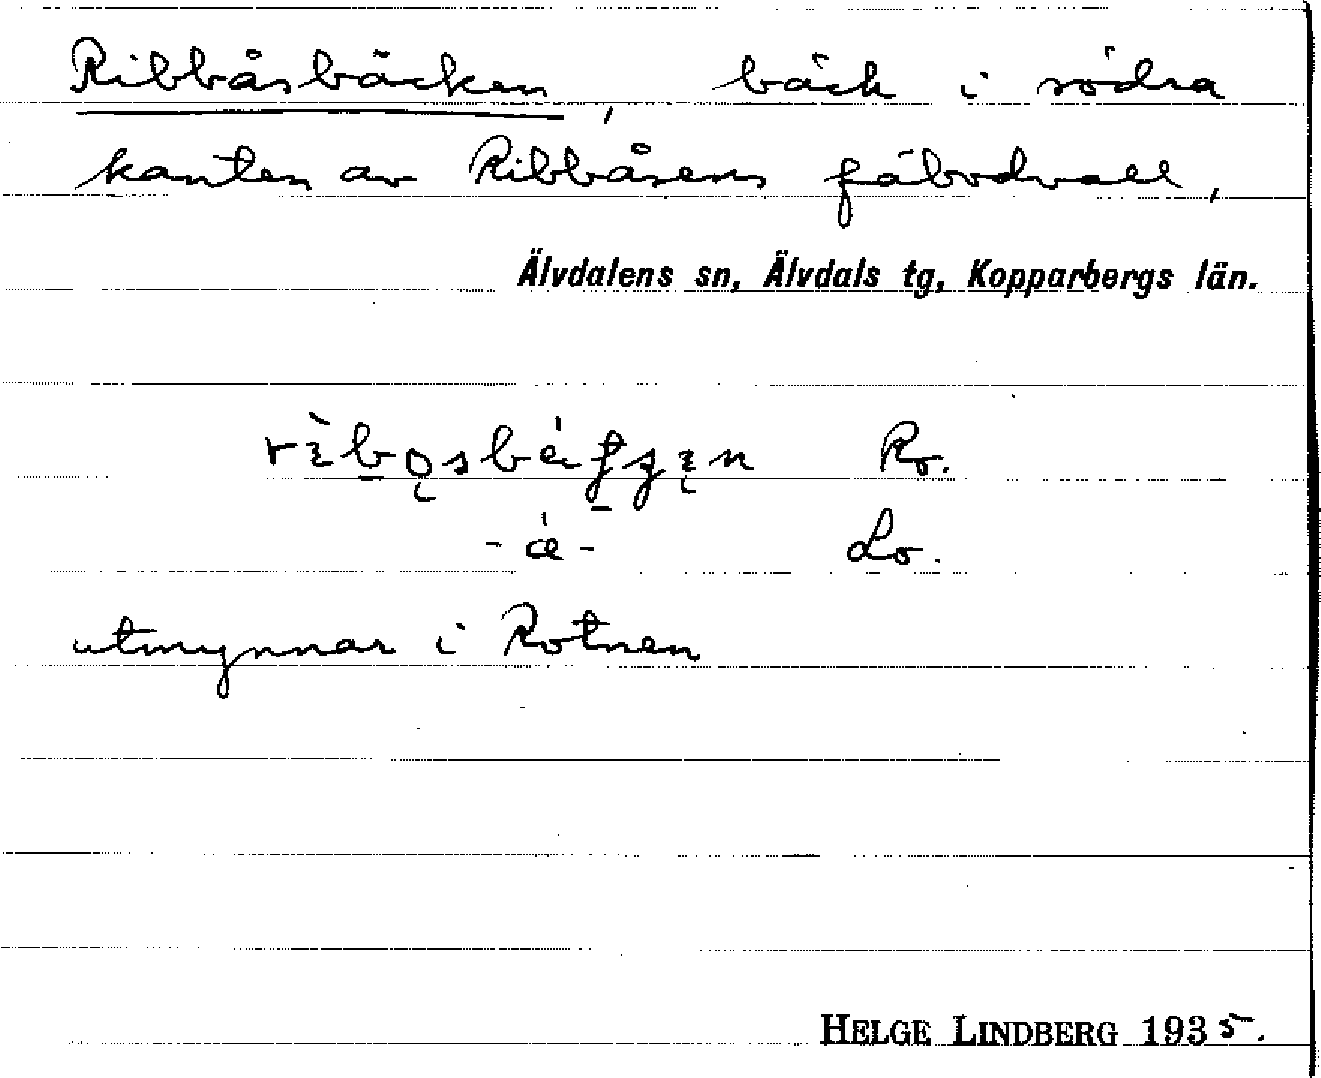 Ribbåsbäcken, bäck i södra
kanten av Ribbåsens fäbodvall,
Älvdalens sn, Älvdals tg, Kopparbergs län.
Ro.
-ǽ- Lo.
utmynnar i Rotnen
HELGE LINDBERG 1935.